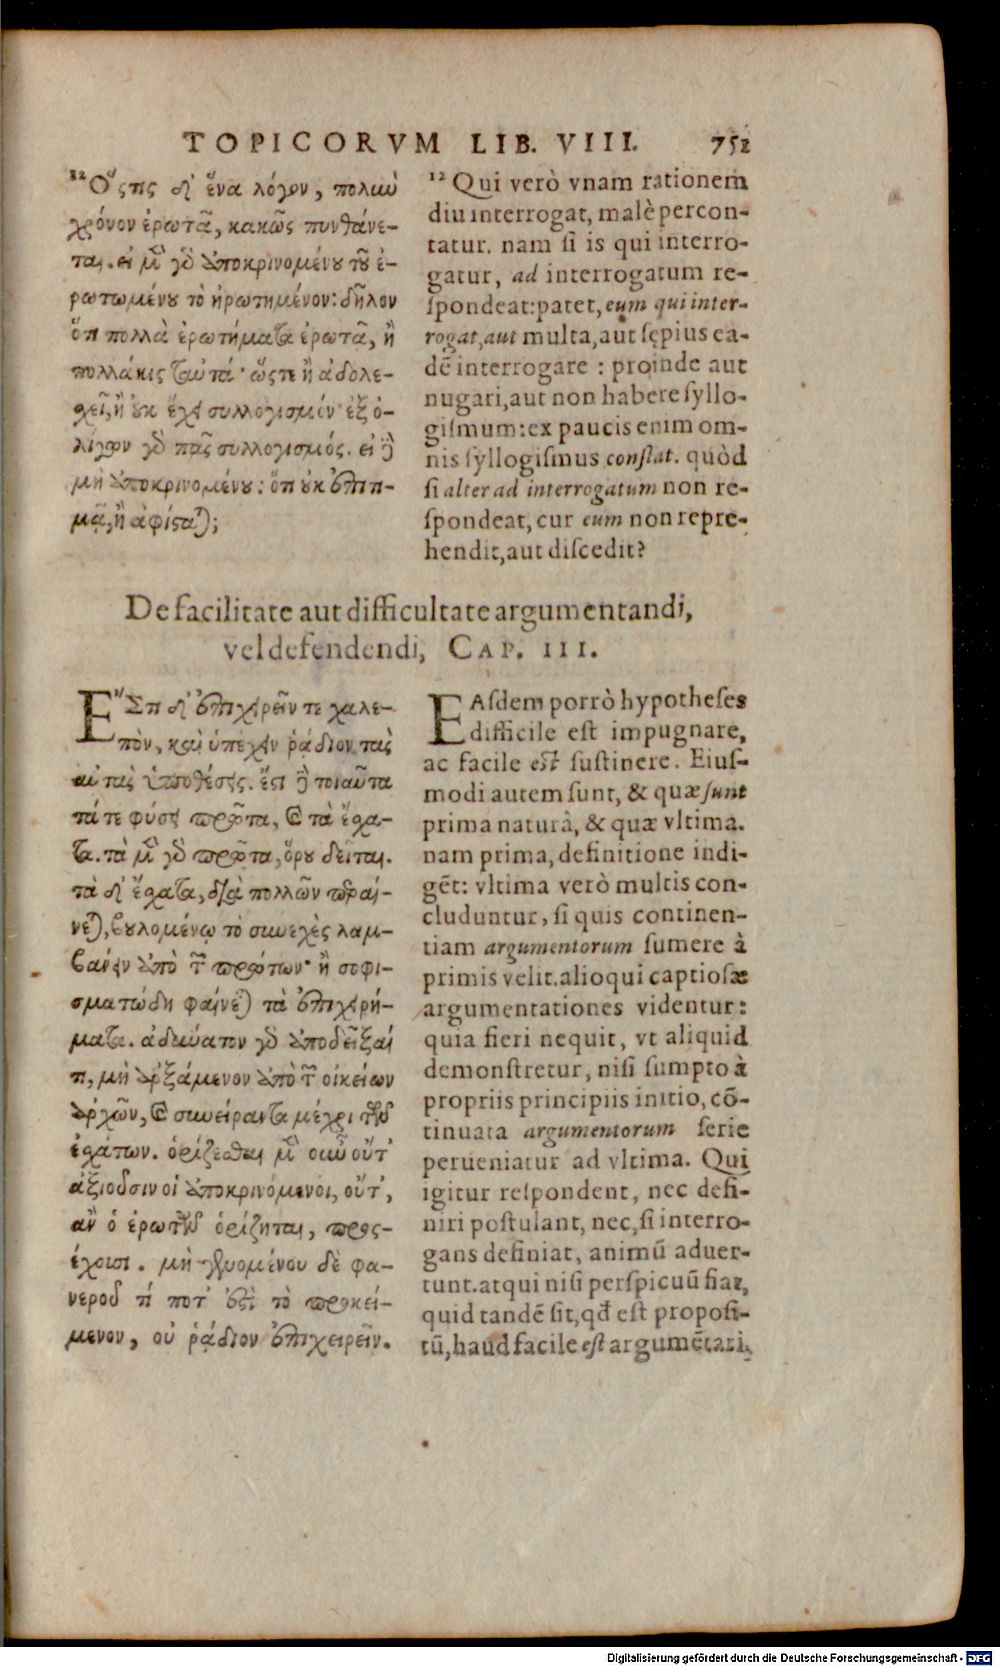 TOPICORVM LIB. VIII. 751
¹²Ὅςτις δ' ἕνα λόγον, πολὺν
χρόνον ἐρωτᾷ, κακῶς πυνθάνε-
ται. εἰ μὲν γὸ ἀποκρινομένου τοῦ ἐ-
ρωτωμένου τὸ ἠρωτημένον: δῆλον
ὅτι πολλὰ ἐρωτήματα ἐρωτᾷ, ἢ
πολλάκις ταὐτά· ὥςτε ἢ ἀδολε-
χεῖ, ἢ οὐκ ἔχει συλλογισμόν· ἐξ ὀ-
λίγων γὸ πᾶς συλλογισμός. εἰ δὲ
μὴ ἀποκρινομένου: ὅτι οὐκ ἐπιτι-
μᾷ, ἢ ἀφίσταται;
¹² Qui verò vnam rationem
diu interrogat, malè percon-
tatur. nam si is qui interro-
gatur, ad interrogatum re-
spondeat: patet, eum qui inter-
rogat, aut multa, aut sępius ea-
dē interrogare : proinde aut
nugari, aut non habere syllo-
gismum: ex paucis enim om-
nis syllogismus constat. quòd
si alter ad interrogatum non re-
spondeat, cur eum non repre-
hendit, aut discedit?
De facilitate aut difficultate argumentandi,
vel defendendi, CAP. III.
ἜΣτι δ' ἐπιχειρεῖν τε χαλε-
πὸν, καὶ ὑπέχειν ῥάδιον τὰς
αὐτὰς ὑποθέσεις. ἔστι δὲ τοιαῦτα
τά τε φύσει πρῶτα, καὶ τὰ ἔσχα-
τα. τὰ μὲν γὸ πρῶτα, ὅρου δεῖται.
τὰ δ' ἔσχατα, διὰ πολλῶν περαί-
νεται, βουλομένῳ τὸ συνεχὲς λαμ-
βάνειν ἀπὸ τῶν πρώτων· ἢ σοφι-
σματώδη φαίνεται τὰ ἐπιχειρή-
ματα. ἀδύνατον γὸ ἀποδεῖξαί
τι, μὴ ἀρξάμενον ἀπὸ τῶν οἰκείων
ἀρχῶν, καὶ συνείραντα μέχρι τῶν
ἐσχάτων. ὁρίζεσθαι μὲν οὖν οὔτ'
ἀξιοῦσιν οἱ ἀποκρινόμενοι, οὔτ',
ἂν ὁ ἐρωτῶν ὁρίζηται, προς-
έχουσι. μὴ γενομένου δὲ φα-
νεροῦ τί ποτ' ἐστὶ τὸ προκεί-
μενον, οὐ ῥᾴδιον ἐπιχειρεῖν.
EAsdem porrò hypotheses
difficile est impugnare,
ac facile est sustinere. Eius-
modi autem sunt, & quæ sunt
prima naturâ, & quæ vltima.
nam prima, definitione indi-
gēt: vltima verò multis con-
cluduntur, si quis continen-
tiam argumentorum sumere à
primis velit. alioqui captiosæ
argumentationes videntur:
quia fieri nequit, vt aliquid
demonstretur, nisi sumpto à
propriis principiis initio, cō-
tinuata argumentorum serie
perueniatur ad vltima. Qui
igitur respondent, nec defi-
niri postulant, nec, si interro-
gans definiat, animū aduer-
tunt. atqui nisi perspicuū fiat,
quid tandē sit, qđ est proposi-
tū, haud facile est argumētari.
Digitalisierung gefördert durch die Deutsche Forschungsgemeinschaft - DFG